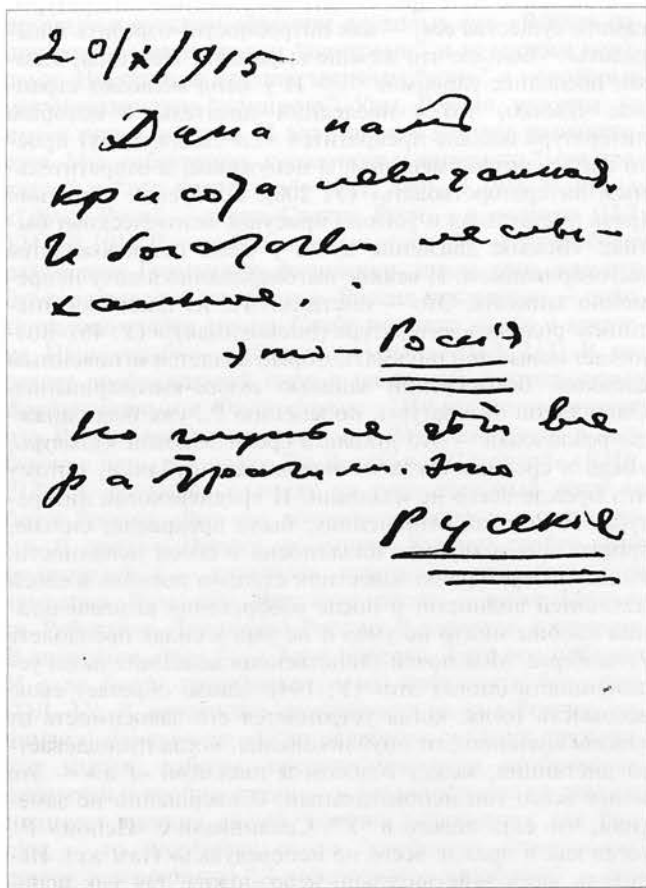 20/X/915
Дана намъ
красота невиданная.
И богатство неслы-
ханное.
Это — Россія
Но глупые дѣти все
растратили. Это
Русскіе